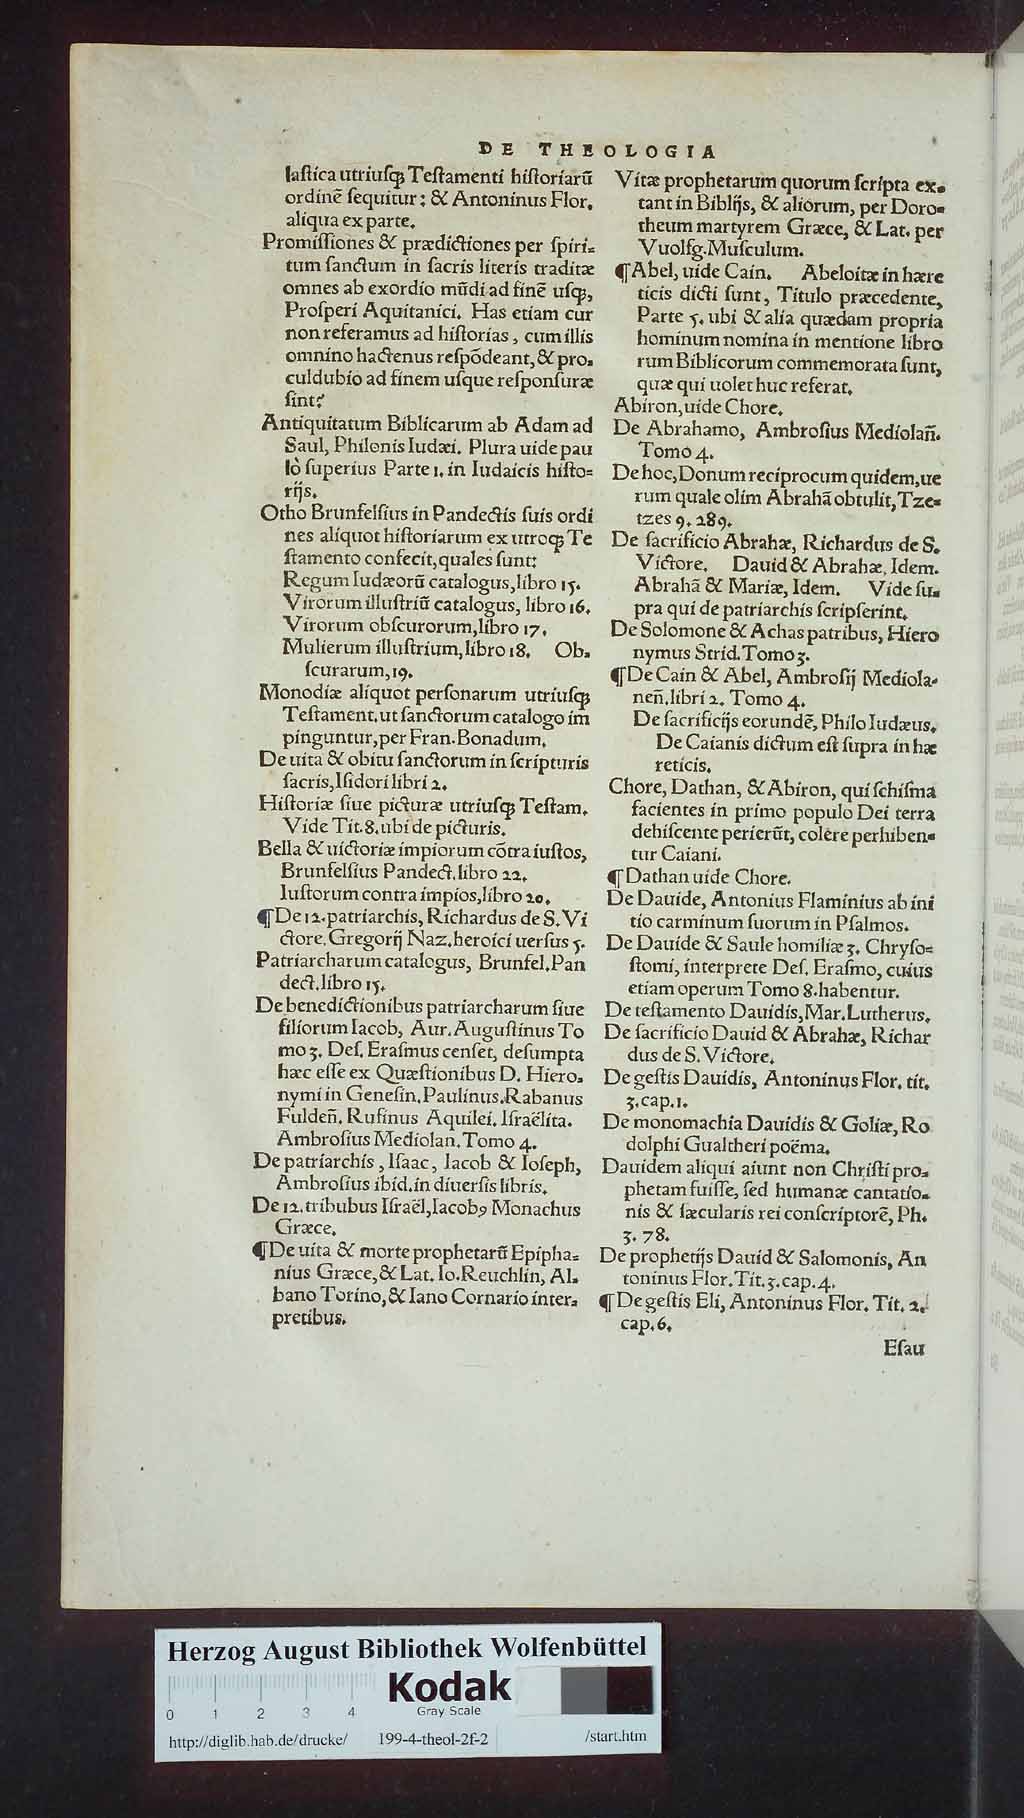 DE THEOLOGIA
laſtica utriuſqꝫ Teſtamenti hiſtoriarũ
ordinẽ ſequitur: & Antoninus Flor.
aliqua ex parte.
Promiſſiones & prædictiones per ſpiri-
tum ſanctum in ſacris literis traditæ
omnes ab exordio mũdi ad finẽ uſqꝫ,
Proſperi Aquitanici. Has etiam cur
non referamus ad hiſtorias, cum illis
omnino hactenus reſpõdeant, & pro-
culdubio ad finem uſque reſponſuræ
ſint?
Antiquitatum Biblicarum ab Adam ad
Saul, Philonis Iudæi. Plura uide pau
lò ſuperius Parte 1. in Iudaicis hiſto-
rijs.
Otho Brunfelſius in Pandectis ſuis ordi
nes aliquot hiſtoriarum ex utroqꝫ Te
ſtamento confecit, quales ſunt:
Regum Iudæorũ catalogus, libro 15.
Virorum illuſtriũ catalogus, libro 16.
Virorum obſcurorum, libro 17.
Mulierum illuſtrium, libro 18. Ob-
ſcurarum, 19.
Monodiæ aliquot perſonarum utriuſqꝫ
Teſtament. ut ſanctorum catalogo im
pinguntur, per Fran. Bonadum.
De uita & obitu ſanctorum in ſcripturis
ſacris, Iſidori libri 2.
Hiſtoriæ ſiue picturæ utriuſqꝫ Teſtam.
Vide Tit. 8. ubi de picturis.
Bella & uictoriæ impiorum cõtra iuſtos,
Brunfelſius Pandect. libro 22.
Iuſtorum contra impios, libro 20.
¶ De 12. patriarchis, Richardus de S. Vi
ctore. Gregorij Naz. heroici uerſus 5.
Patriarcharum catalogus, Brunfel. Pan
dect. libro 15.
De benedictionibus patriarcharum ſiue
filiorum Iacob, Aur. Auguſtinus To
mo 3. Deſ. Eraſmus cenſet, deſumpta
hæc eſſe ex Quæſtionibus D. Hiero-
nymi in Geneſin. Paulinus. Rabanus
Fuldeñ. Rufinus Aquilei. Iſraëlita.
Ambroſius Mediolan. Tomo 4.
De patriarchis, Iſaac, Iacob & Ioſeph,
Ambroſius ibid. in diuerſis libris.
De 12. tribubus Iſraël, Iacobꝰ Monachus
Græce.
¶ De uita & morte prophetarũ Epipha-
nius Græce, & Lat. Io. Reuchlin, Al-
bano Torino, & Iano Cornario inter-
pretibus.
Vitæ prophetarum quorum ſcripta ex-
tant in Biblijs, & aliorum, per Doro-
theum martyrem Græce, & Lat. per
Vuolfg. Muſculum.
¶ Abel, uide Cain. Abeloitæ in hære
ticis dicti ſunt, Titulo præcedente,
Parte 5. ubi & alia quædam propria
hominum nomina in mentione libro
rum Biblicorum commemorata ſunt,
quæ qui uolet huc referat.
Abiron, uide Chore.
De Abrahamo, Ambroſius Mediolañ.
Tomo 4.
De hoc, Donum reciprocum quidem, ue
rum quale olim Abrahã obtulit, Tze-
tzes 9. 289.
De ſacrificio Abrahæ, Richardus de S.
Victore. Dauid & Abrahæ, Idem.
Abrahã & Mariæ, Idem. Vide ſu-
pra qui de patriarchis ſcripſerint.
De Solomone & Achas patribus, Hiero
nymus Strid. Tomo 3.
¶ De Cain & Abel, Ambroſij Mediola-
neñ. libri 2. Tomo 4.
De ſacrificijs eorundẽ, Philo Iudæus.
De Caianis dictum eſt ſupra in hæ
reticis.
Chore, Dathan, & Abiron, qui ſchiſma
facientes in primo populo Dei terra
dehiſcente perierũt, colere perhiben-
tur Caiani.
¶ Dathan uide Chore.
De Dauide, Antonius Flaminius ab ini
tio carminum ſuorum in Pſalmos.
De Dauide & Saule homiliæ 3. Chryſo-
ſtomi, interprete Deſ. Eraſmo, cuius
etiam operum Tomo 8. habentur.
De teſtamento Dauidis, Mar. Lutherus.
De ſacrificio Dauid & Abrahæ, Richar
dus de S. Victore.
De geſtis Dauidis, Antoninus Flor. tit.
3. cap. 1.
De monomachia Dauidis & Goliæ, Ro
dolphi Gualtheri poëma.
Dauidem aliqui aiunt non Chriſti pro-
phetam fuiſſe, ſed humanæ cantatio-
nis & ſæcularis rei conſcriptorẽ, Ph.
3. 78.
De prophetijs Dauid & Salomonis, An
toninus Flor. Tit. 3. cap. 4.
¶ De geſtis Eli, Antoninus Flor. Tit. 2.
cap. 6.
Eſau
Herzog August Bibliothek Wolfenbüttel
Kodak
Gray Scale
0 1 2 3 4
http://diglib.hab.de/drucke/ 199-4-theol-2f-2 /start.htm